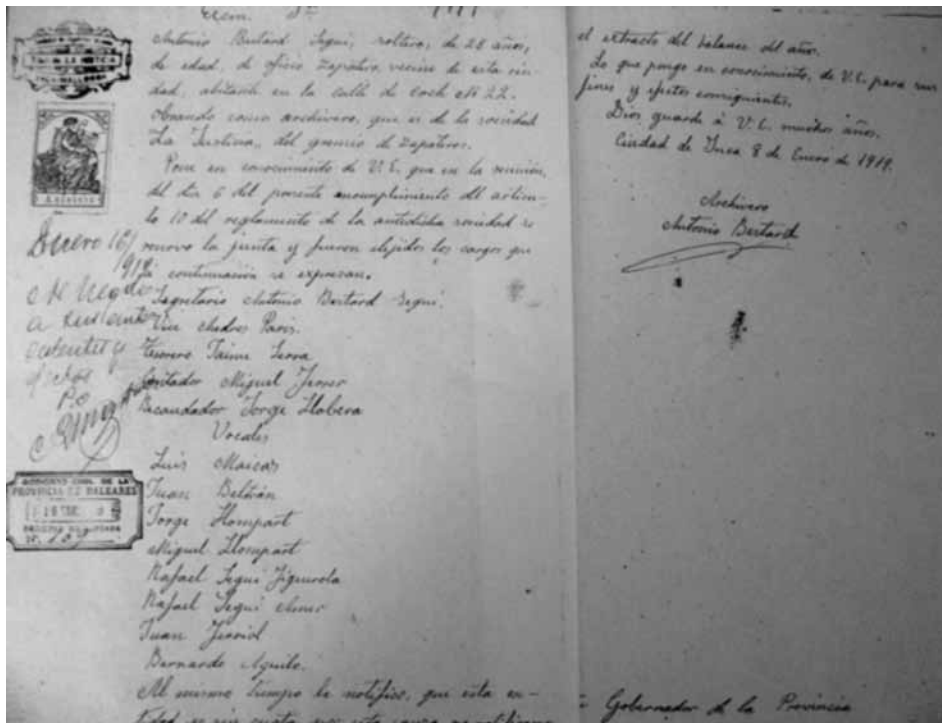 Antonio Bertard Seguí, soltero, de 28 años,
de edad, de oficio Zapatero, vecino de esta ciu-
dad, abitante en la calle de Coch Nº 22.
Obrando como archivero, que es de la sociedad
La Justicia, del gremio de Zapateros.
Pone en conocimiento de V. E. que en la reunión,
del dia 6 del presente encumplimiento del articu-
lo 10 del reglamento de la antedicha sociedad se
renovo la junta y fueron elejidos los cargos que
á continuación se expresan.
Segretario Antonio Bertard Seguí.
Vice Andres Paris.
Tesorero Jaime Serra
Contador Miguel Ferrer
Recaudador Jorge Llobera
Vocales
Luis Maicas
Juan Beltrán
Jorge Llompart
Miguel Llompart
Rafael Seguí Figuerola
Rafael Seguí
Juan
Bernardo Aguilo.
Al mismo tiempo le notifico, que esta en-
tidad
Enero 16/
P.O
GOBIERNO CIVIL DE LA
PROVINCIA DE BALEARES
el extracto del balance del año.
Lo que pongo en conocimiento, de V. E. para sus
fines y efectos consiguientes.
Dios guarde á V. E. muchos años.
Ciudad de Inca 8 de Enero de 1919.
Archivero
Antonio Bertard
Gobernador de la Provincia